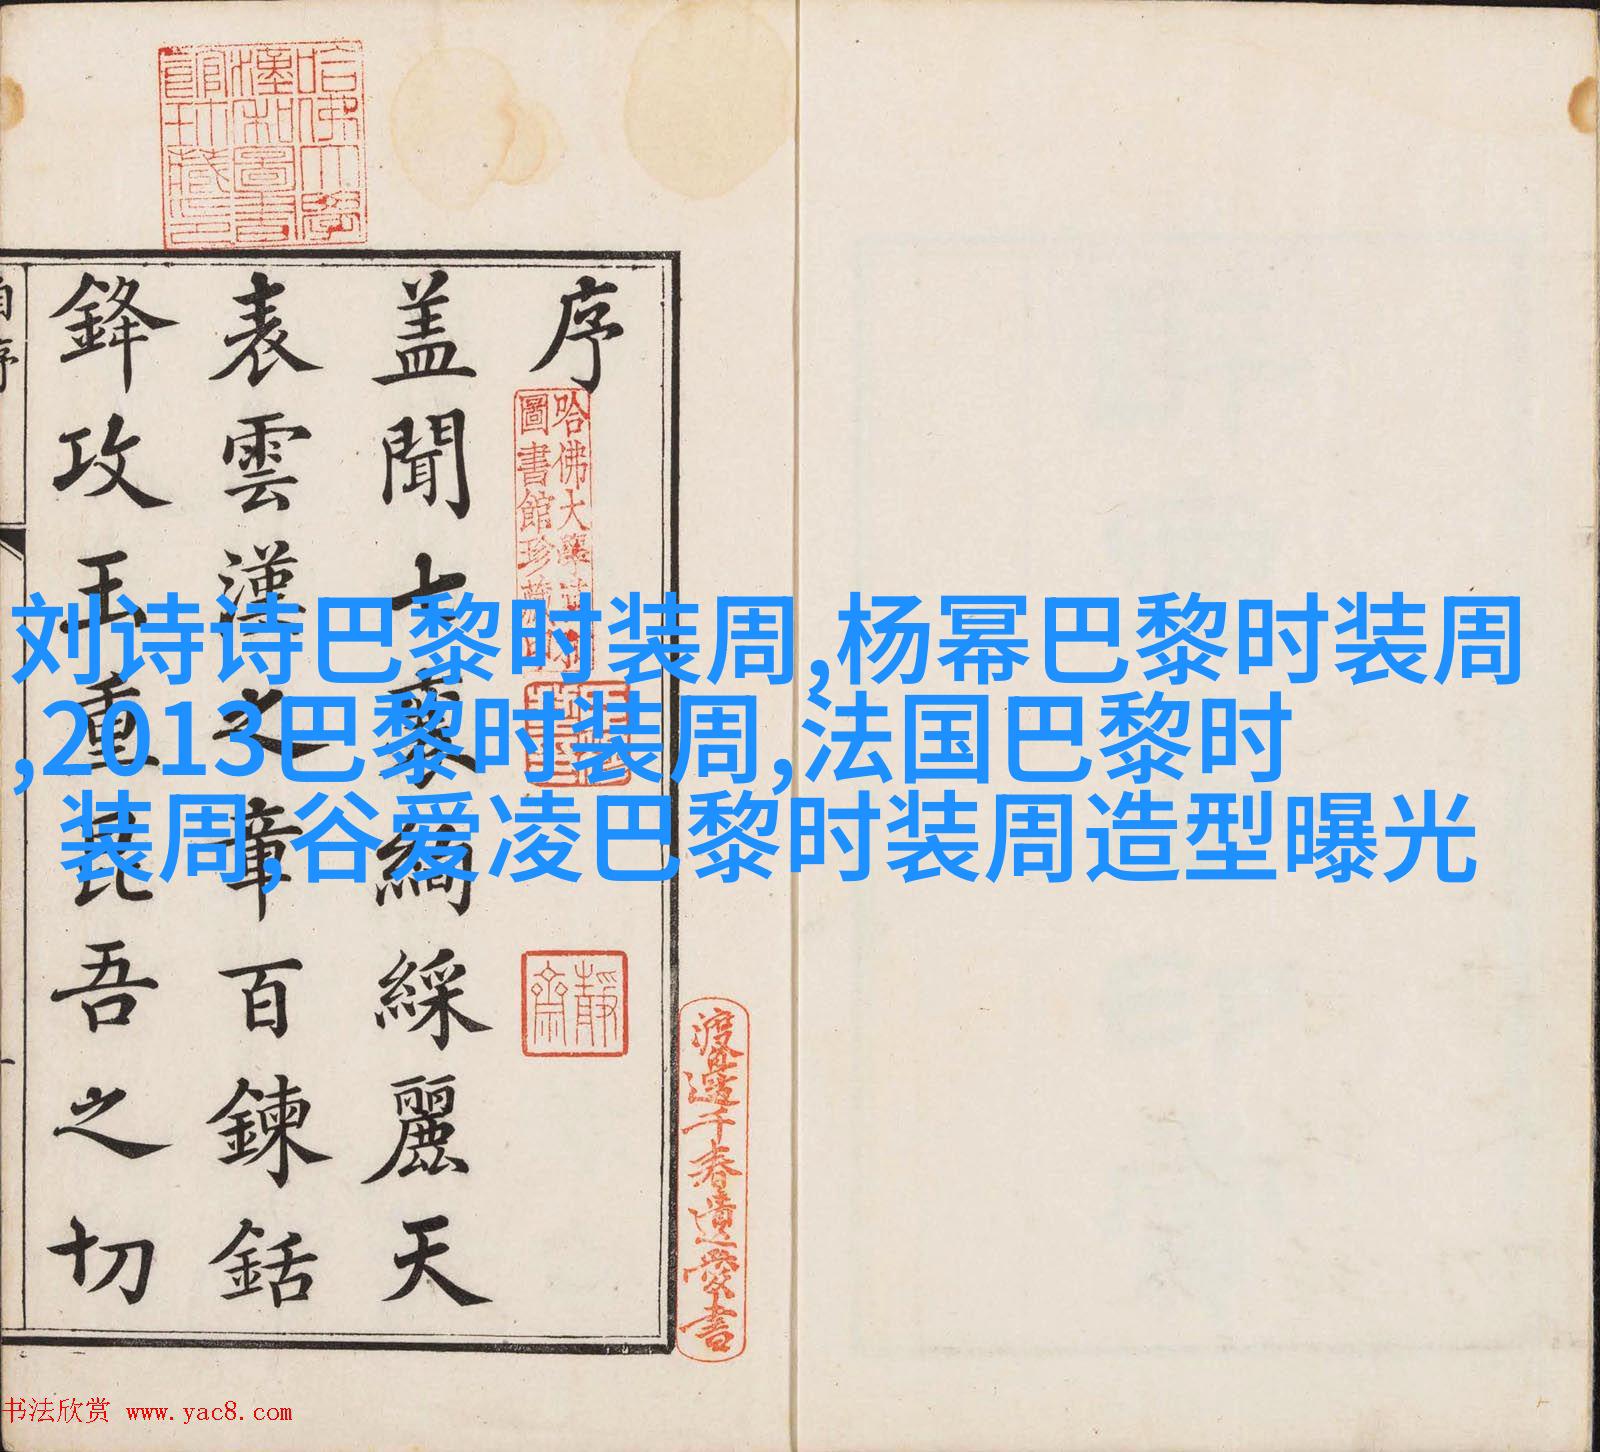 刘诗诗巴黎时装周,杨幂巴黎时装周
,2013巴黎时装周,法国巴黎时
装周,谷爱凌巴黎时装周造型曝光
序
蓋聞七襄絢綵麗天
表雲漢之章百鍊銛
鋒攻玉重昆吾之切
自序
哈佛大學
漢和圖書
館珍藏印
哈佛大學
圖書館珍藏印
靜齋
渡邊千春遺愛書
书法欣赏 www.yac8.com